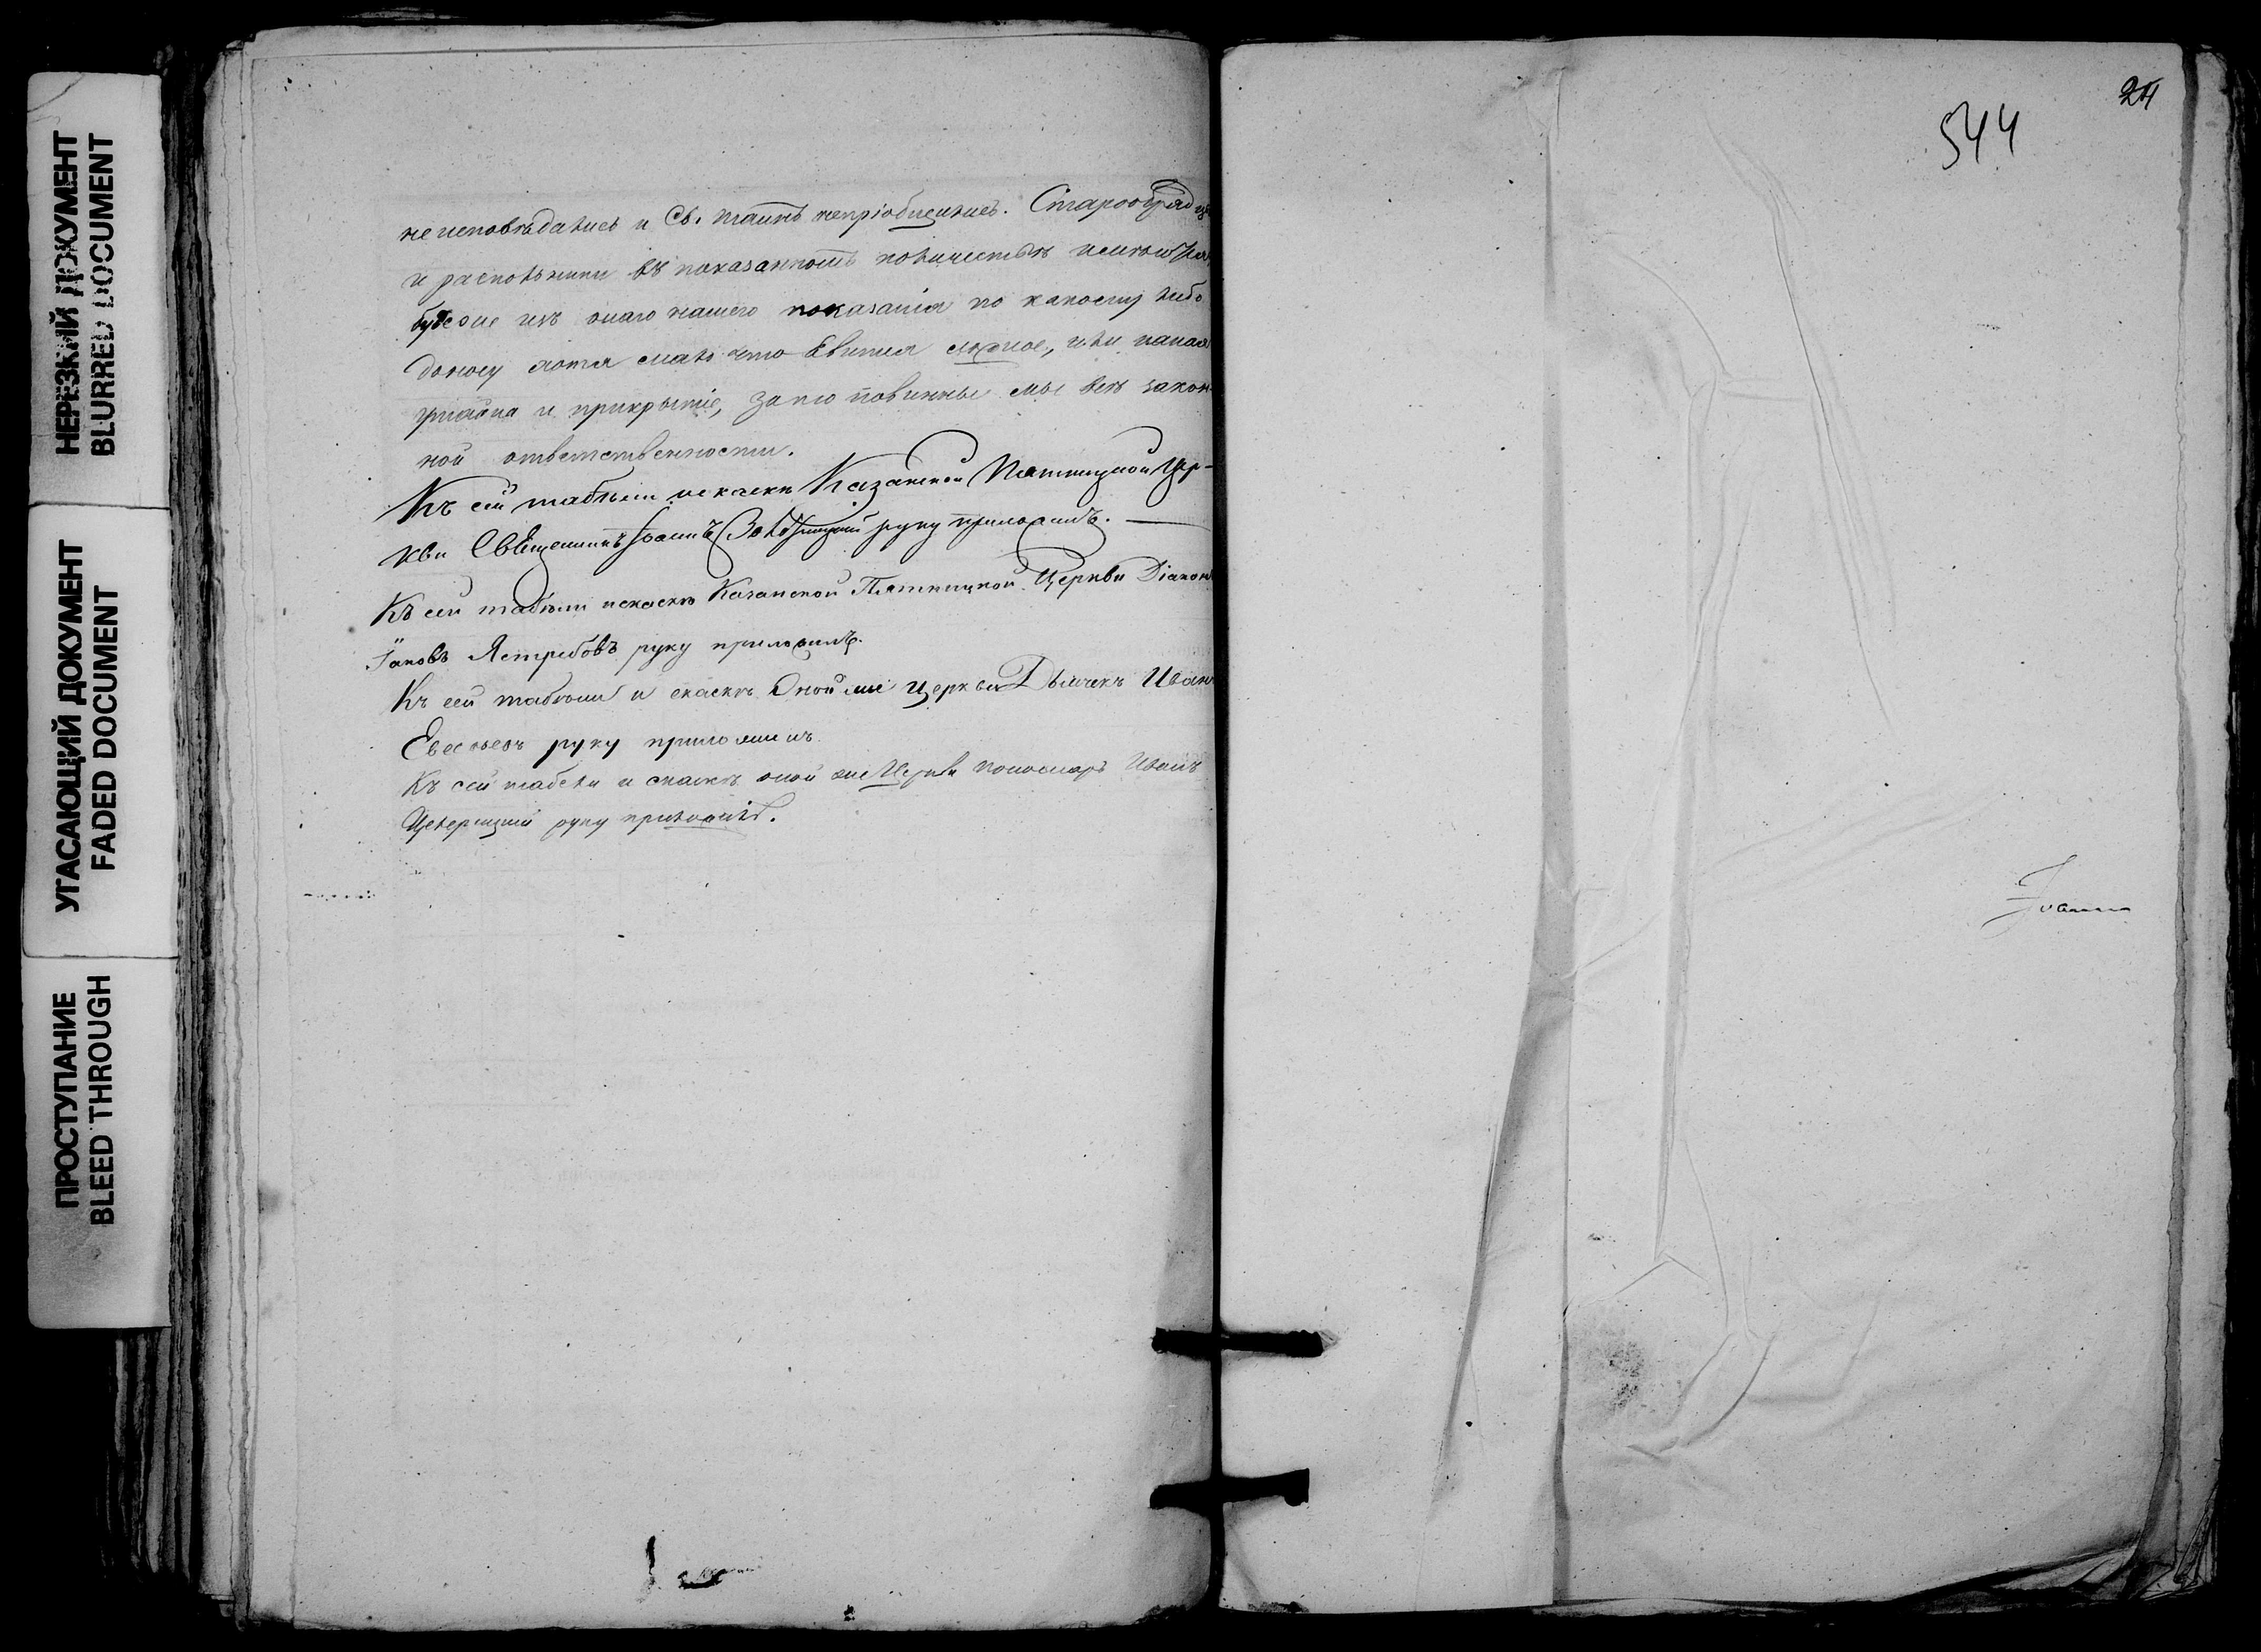 НЕРЕЗКИЙ ДОКУМЕНТ
BLURRED DOCUMENT
УГАСАЮЩИЙ ДОКУМЕНТ
FADED DOCUMENT
ПРОСТУПАНИЕ
BLEED THROUGH
неисповѣдались и Св. таинъ непріобщились. Старообрядцы
и раскольники въ показанномъ количествѣ
буде же изъ онаго нашего показанія по какому либо
доносу хотя мало что явится ложное, или какая
утайка и прикрытіе, за то повинны мы закон-
ной отвѣтственности.
Къ сей табѣли и скаскѣ Казанской Пятницкой Цер-
кви Священникъ Іоаннъ руку приложилъ.
Къ сей табѣли и скаскѣ Казанской Пятницкой Церкви Діаконъ
Іаковъ Ястребовъ руку приложилъ.
Къ сей табѣли и скаскѣ оной же церкви Дьячекъ Иванъ
руку приложилъ
Къ сей табели и скаскѣ оной же Церкви пономарь Иванъ
руку приложилъ.
544
24